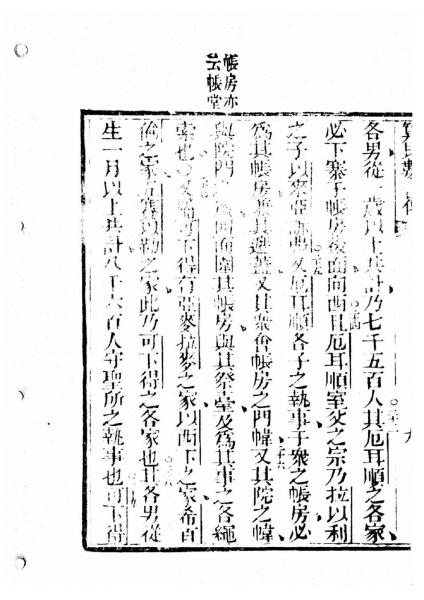 帳房亦
云帳堂
各男從一歲以上共計乃七千五百人其厄耳順之各家
必下寨于帳房後面向西且厄耳順室父之宗乃拉以利
之子以來亞 也又厄耳順各子之執事于衆之帳房必
為其帳房並其遮蓋又其衆會帳房之門幃又其院之幃
與院門之幃四面圍其帳房與其祭臺及為其事之各繩
索也○又 可下得有亞麥拉麥之家以西下之家希百
倫之家五賽以勒之家此乃可下得之各家也且各男從
生一月以上共計八千六百人守聖所之執事也可下得